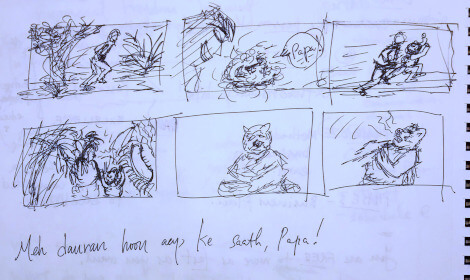 Papa!
Meh dauran hoon aap ke saath, Papa!